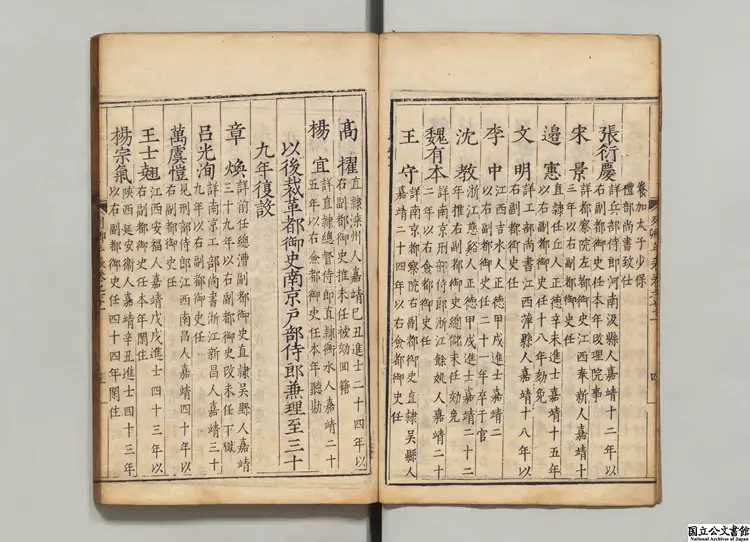 養加太子少保
禮部尚書致仕
張衍慶
詳兵部侍郎河南汲縣人嘉靖十二年以
右副都御史任本年改理院事
宋景
詳都察院左都御史江西奉新人嘉靖十
三年以右副都御史任十八年劾免
邉憲
直隸任丘人正德辛未進士嘉靖十五年
以右副都御史任
文明
詳工部尚書江西
縣人嘉靖十八年以
右副都御史任
李中
江西吉水人正德甲戌進士嘉靖二
以右副都御史任二十一年卒于官
沈教
浙江慈谿人正德甲戌進士嘉靖二十二
年推右副都御史總儲未任劾免
魏有本
詳南京刑部侍郎浙江餘姚人嘉靖二十
二年以右僉都御史任
王守
詳南京都察院右副都御史直隸吳縣人
嘉靖二十四年以右僉都御史任
髙擢
直隸灤州人嘉靖己丑進士二十四年以
右副都御史推未任被劾回籍
楊宜
詳直隸總督侍郎直隸衡水人嘉靖二十
五年以右僉都御史任本年聽勘
以後裁革都御史南京戸部侍郎兼理至三十
九年復設
章煥
詳前任總漕副都御史直隸吳縣人嘉靖
三十九年以右副都御史改未任下獄
吕光洵
詳南京工部尚書浙江新昌人嘉靖三十
九年以右副都御史任
萬虞愷
見刑部侍郎江西南昌人嘉靖四十年以
右副都御史任
王士翹
江西安福人嘉靖戊戌進士四十三年以
右副都御史任本年閑住
楊宗氣
陝西延安衞人嘉靖辛丑進士四十三年
以右副都御史任四十四年閑住
国立公文書館
National Archives of Japan